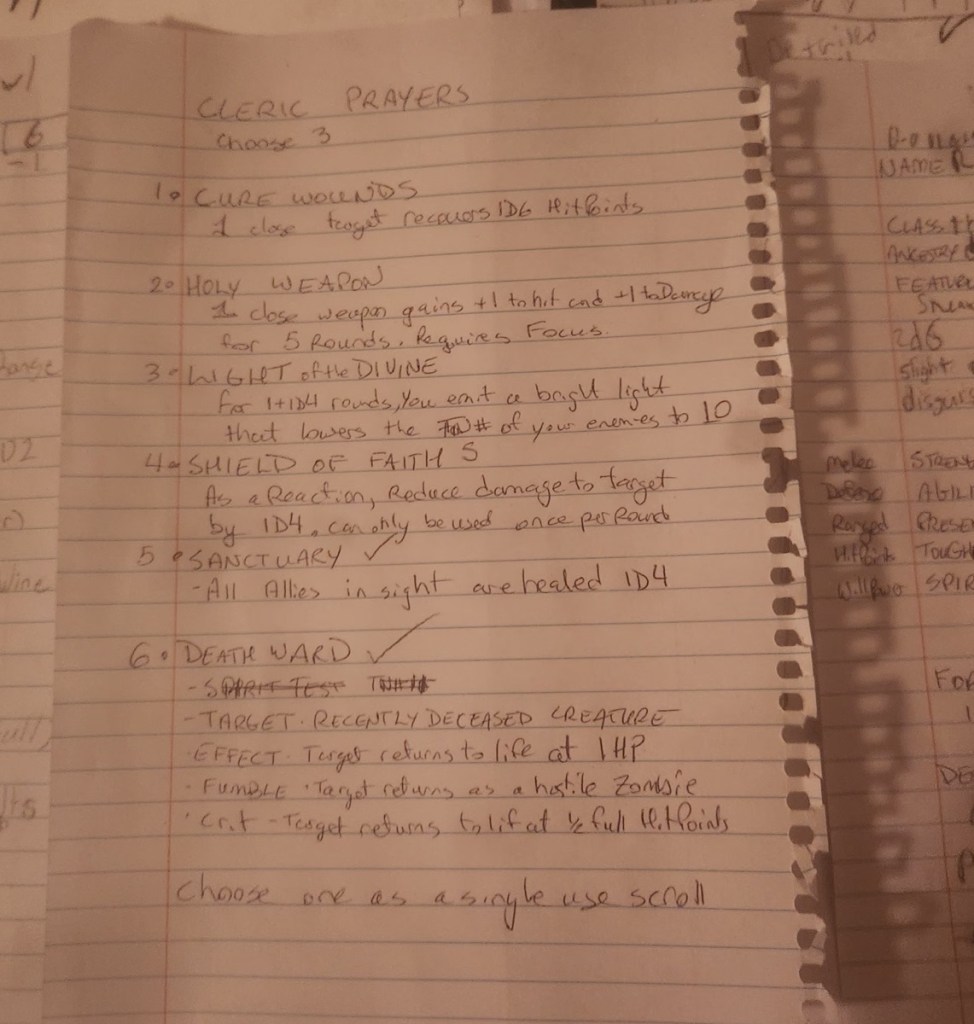 CLERIC PRAYERS
Choose 3
1. CURE WOUNDS
1 close target recovers 1D6 HitPoints
2. HOLY WEAPON
1 close weapon gains +1 to hit and +1 to Damage
for 5 Rounds. Requires Focus.
3. LIGHT of the DIVINE
for 1+1D4 rounds, You emit a bright light
that lowers the # of your enemies to 10
4. SHIELD OF FAITH S
As a Reaction, Reduce damage to target
by 1D4. can only be used once per Round
5. SANCTUARY ✓
-All Allies in sight are healed 1D4
6. DEATH WARD ✓
-SPIRIT TEST
-TARGET. RECENTLY DECEASED CREATURE
EFFECT. Target returns to life at 1 HP
. FUMBLE . Target returns as a hostile Zombie
. Crit - Target returns to lif at ½ full HitPoints
Choose one as a single use scroll
Detailed
NAME
CLASS
ANCESTRY
FEATURE
2d6
slight
disguis
melee STRENT
Defense AGILI
Ranged PRESE
HitPoints TOUGH
SPIR
FOR
DE
6
-1